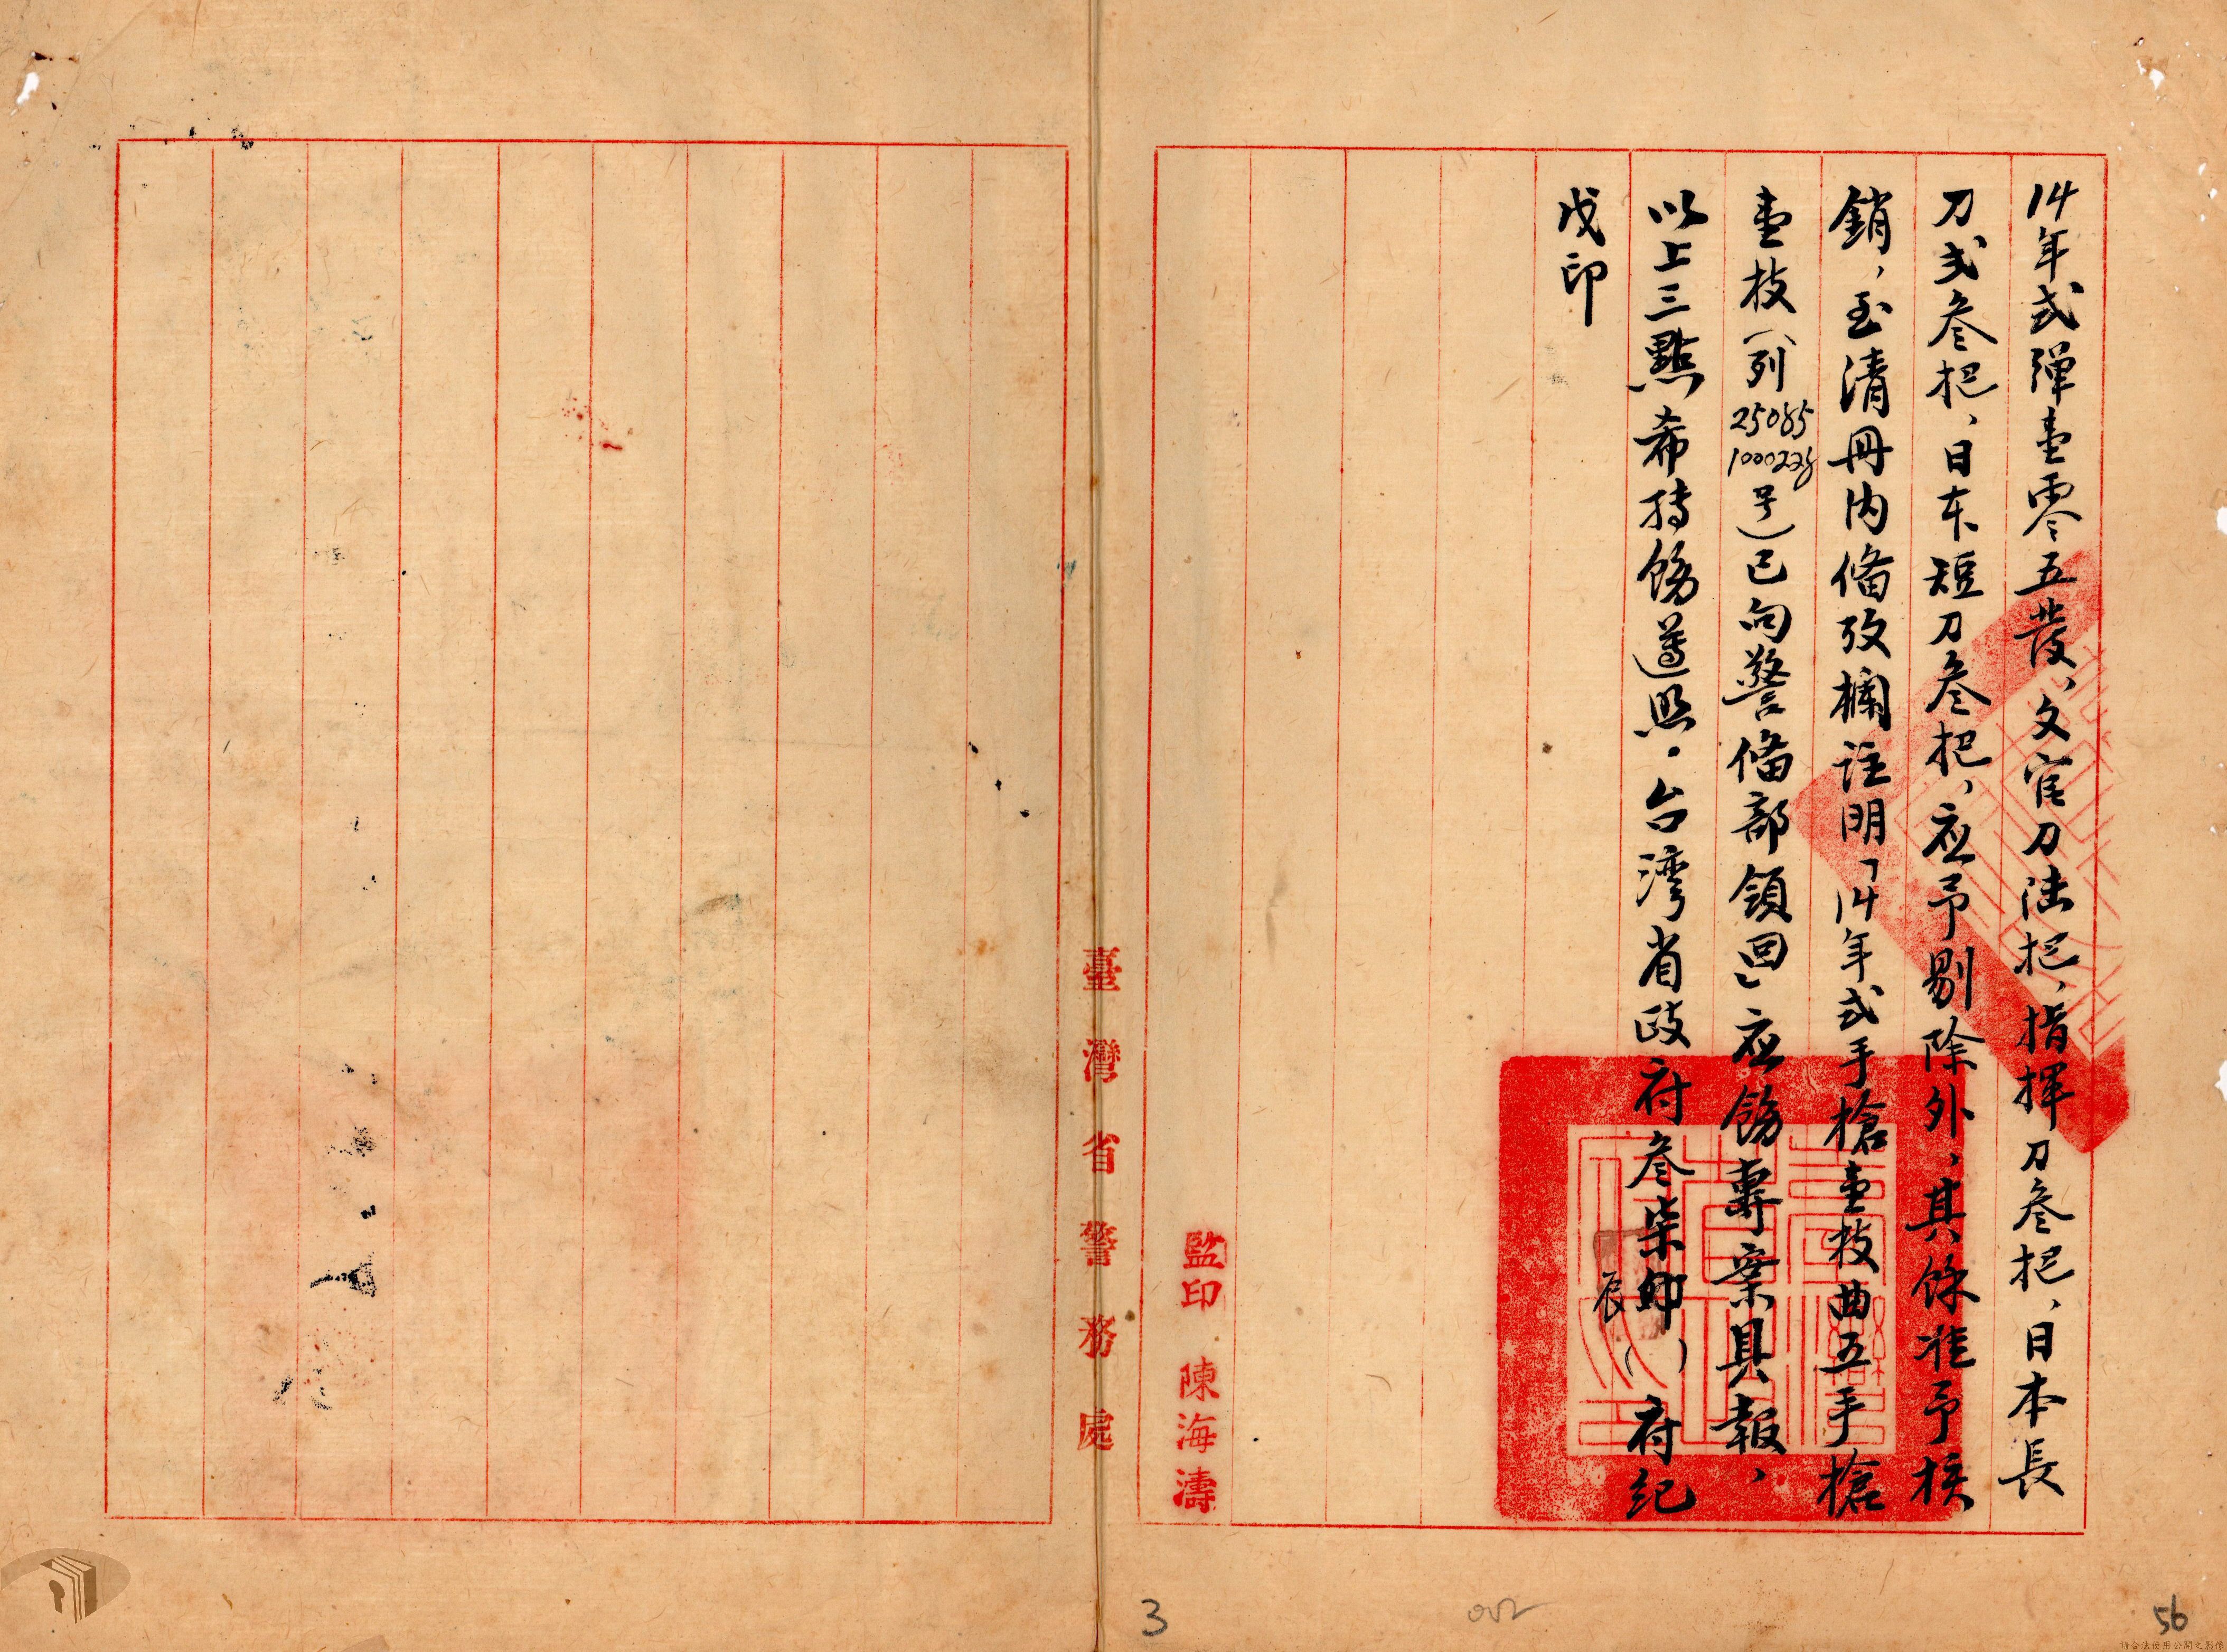 14年式弹壹零五發、文官刀陆把、指揮刀叁把、日本長
刀弍叁把、日本短刀叁把、应予剔除外、其餘准予核
銷、至清冊内俻攷欄註明「14年式手槍壹枝曲五手槍
壹枝(列25085 1000228号)已向警俻部領回」应飭專案具報、
以上三點希持飭遵照。台湾省政府叁柒辰()府紀
戊印
監印 陳海濤
臺灣省警務處
3
56
請合法使用公開之影像